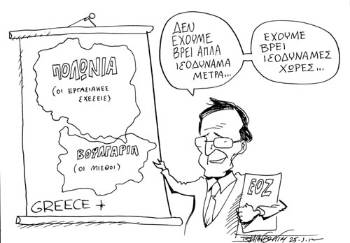 ΠΟΛΩΝΙΑ
(ΟΙ ΕΡΓΑΣΙΑΚΕΣ
ΣΧΕΣΕΙΣ)
ΒΟΥΛΓΑΡΙΑ
(ΟΙ ΜΙΣΘΟΙ)
GREECE +
ΔΕΝ
ΕΧΟΥΜΕ
ΒΡΕΙ ΑΠΛΑ
ΙΣΟΔΥΝΑΜΑ
ΜΕΤΡΑ...
ΕΧΟΥΜΕ
ΒΡΕΙ
ΙΣΟΔΥΝΑΜΕΣ
ΧΩΡΕΣ...
ΕΟΖ